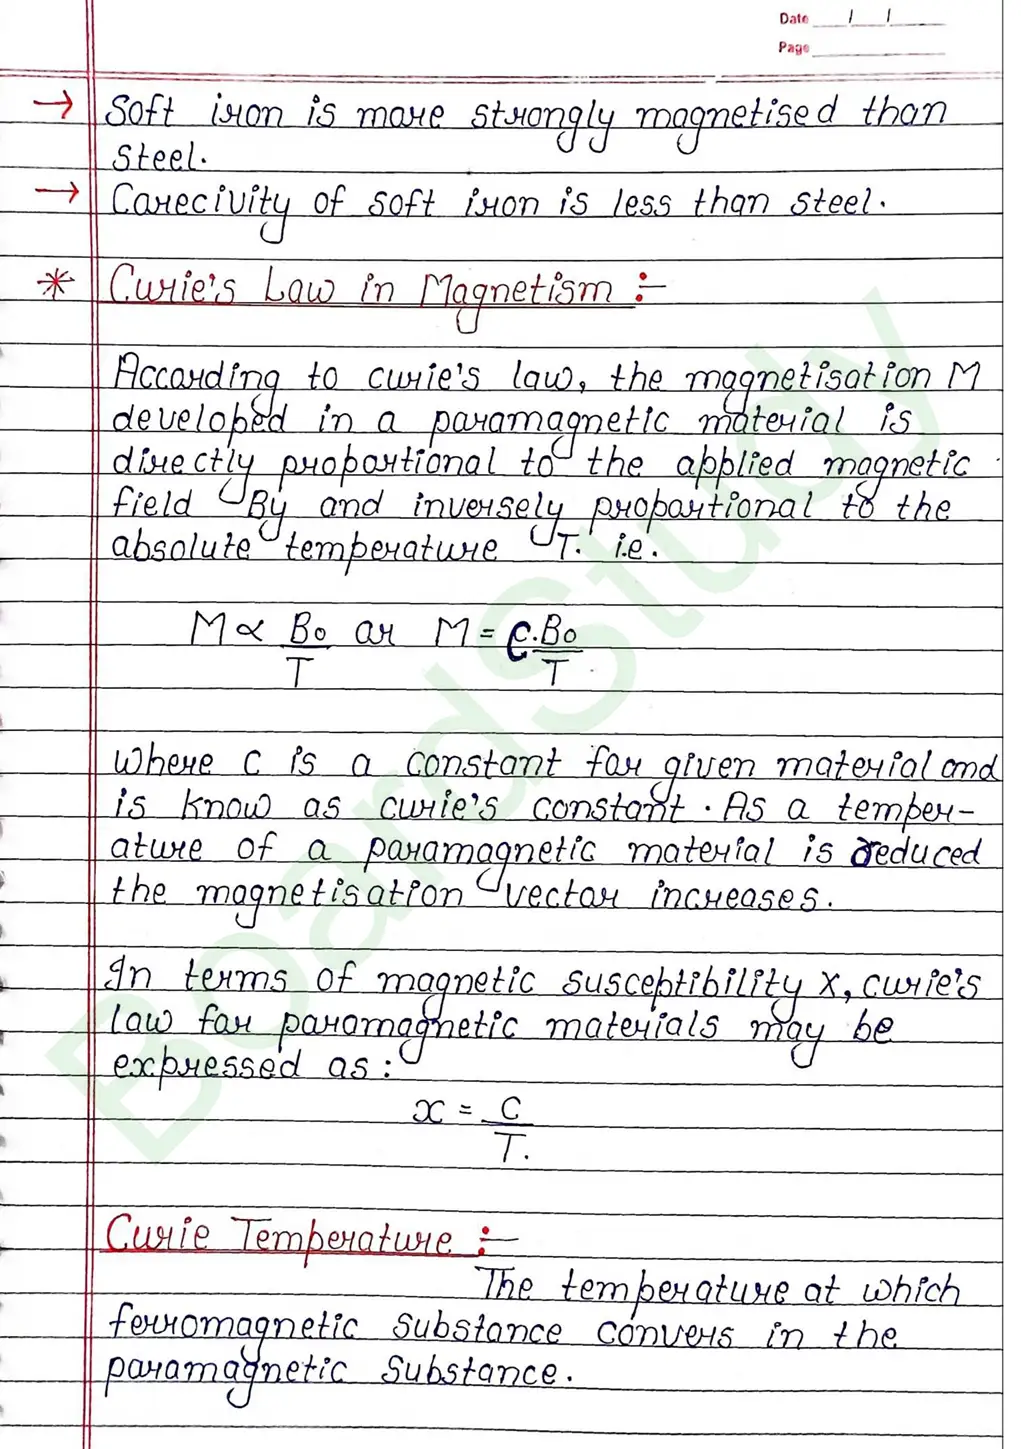 Date / /
Page
→ Soft iron is more strongly magnetised than
steel.
→ Carecivity of soft iron is less than steel.
* Curie's Law in Magnetism :-
According to curie's law, the magnetisation M
developed in a paramagnetic material is
directly proportional to the applied magnetic
field By and inversely proportional to the
absolute temperature T. i.e.
M ∝ B₀/T or M = C.B₀/T
Where C is a constant for given material and
is know as curie's constant. As a temper-
ature of a paramagnetic material is reduced
the magnetisation vector increases.
In terms of magnetic susceptibility X, curie's
law for paramagnetic materials may be
expressed as:
x = C/T.
Curie Temperature :-
The temperature at which
ferromagnetic substance convers in the
paramagnetic Substance.
BoardStudy